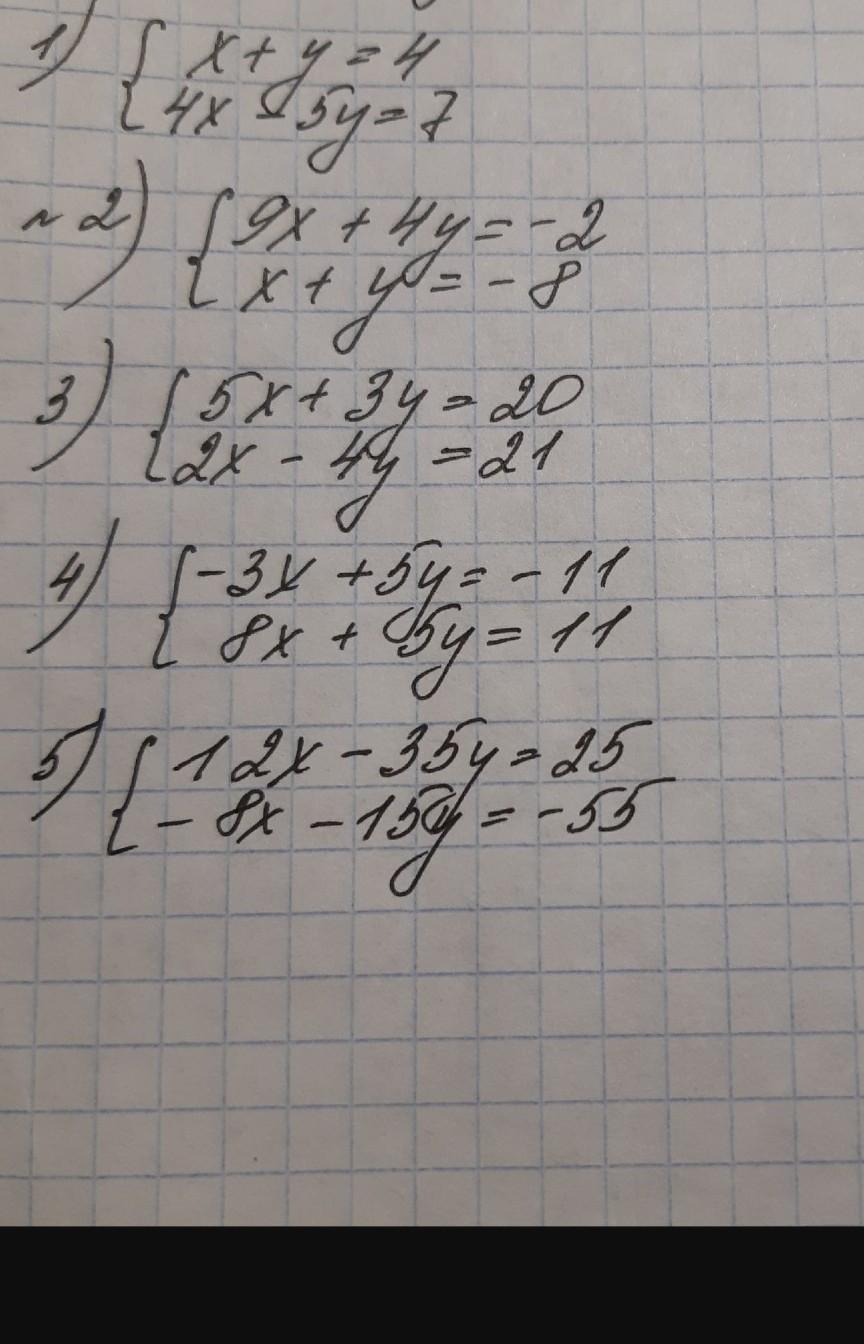 1) { x + y = 4
4x - 5y = 7
~ 2) { 9x + 4y = -2
x + y = - 8
3) { 5x + 3y = 20
2x - 4y = 21
4) { -3x + 5y = - 11
8x + 5y = 11
5) { 12x - 35y = 25
- 8x - 15y = -55